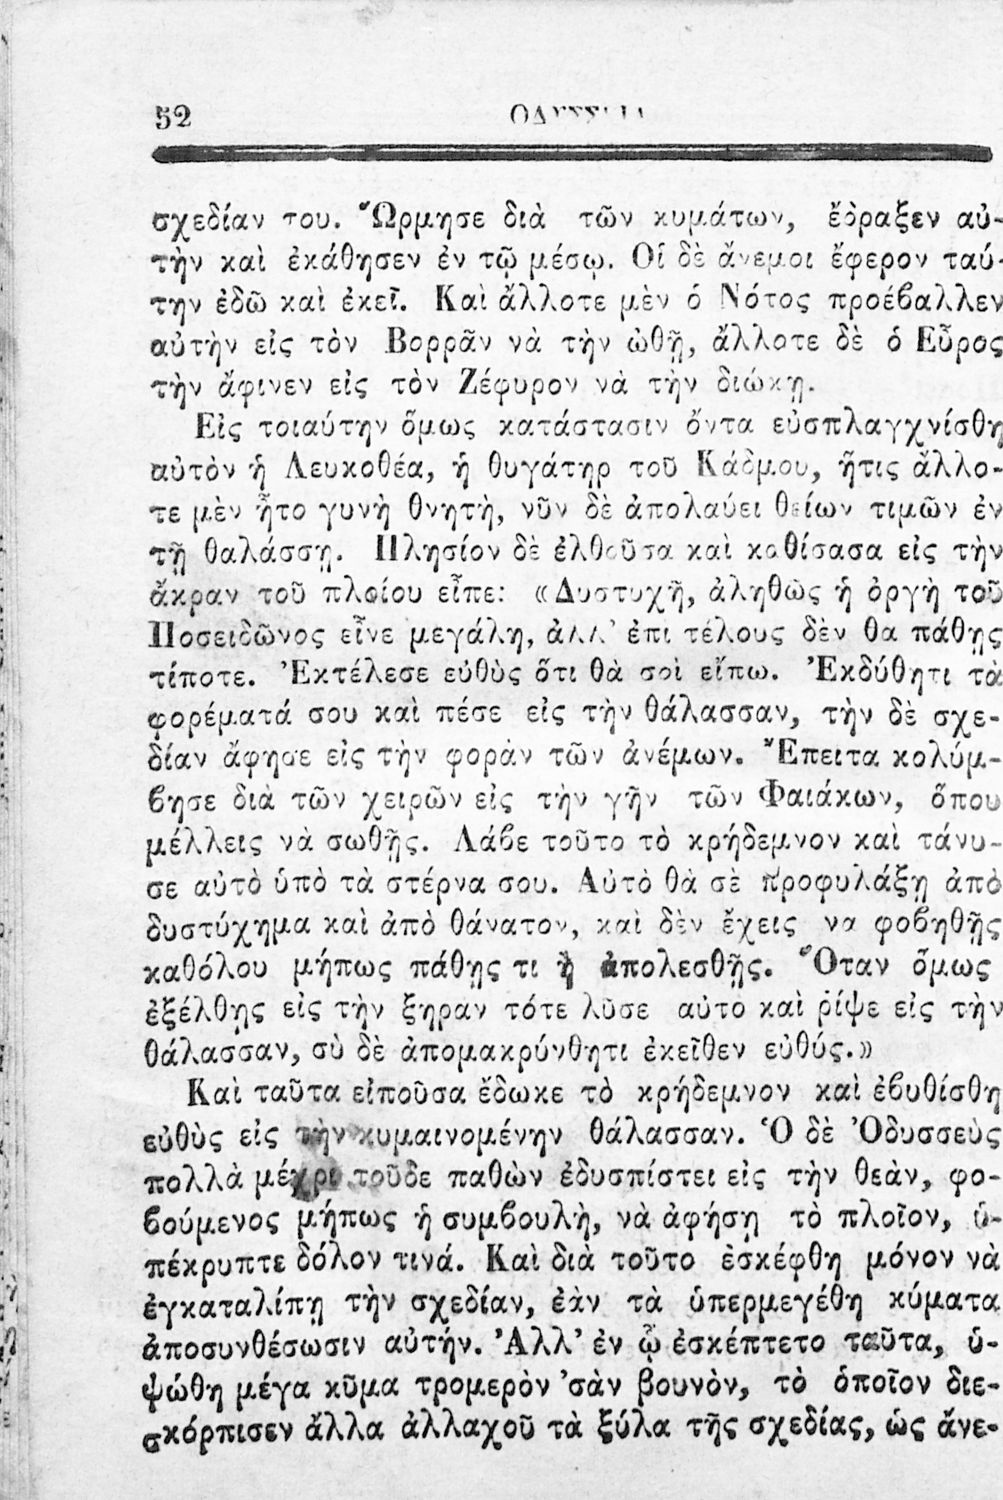 52
ΟΔΥΣΣΕΙΑ
σχεδίαν του. Ὥρμησε διὰ τῶν κυμάτων, ἔδραξεν αὐ-
τὴν καὶ ἐκάθησεν ἐν τῷ μέσῳ. Οἱ δὲ ἄνεμοι ἔφερον ταύ-
την ἐδῶ καὶ ἐκεῖ. Καὶ ἄλλοτε μὲν ὁ Νότος προέβαλλεν
αὐτὴν εἰς τὸν Βορρᾶν νὰ τὴν ὠθῇ, ἄλλοτε δὲ ὁ Εὖρος
τὴν ἄφινεν εἰς τὸν Ζέφυρον νὰ τὴν διώκῃ.
Εἰς τοιαύτην ὅμως κατάστασιν ὄντα εὐσπλαγχνίσθη
αὐτὸν ἡ Λευκοθέα, ἡ θυγάτηρ τοῦ Κάδμου, ἥτις ἄλλο-
τε μὲν ἦτο γυνὴ θνητὴ, νῦν δὲ ἀπολαύει θείων τιμῶν ἐν
τῇ θαλάσσῃ. Πλησίον δὲ ἐλθοῦσα καὶ καθίσασα εἰς τὴν
ἄκραν τοῦ πλοίου εἶπε: «Δυστυχῆ, ἀληθῶς ἡ ὀργὴ τοῦ
Ποσειδῶνος εἶνε μεγάλη, ἀλλ' ἐπι τέλους δὲν θα πάθῃς
τίποτε. Ἐκτέλεσε εὐθὺς ὅτι θὰ σοὶ εἴπω. Ἐκδύθητι τὰ
φορέματά σου καὶ πέσε εἰς τὴν θάλασσαν, τὴν δὲ σχε-
δίαν ἄφησε εἰς τὴν φορὰν τῶν ἀνέμων. Ἔπειτα κολύμ-
βησε διὰ τῶν χειρῶν εἰς τὴν γῆν τῶν Φαιάκων, ὅπου
μέλλεις νὰ σωθῇς. Λάβε τοῦτο τὸ κρήδεμνον καὶ τάνυ-
σε αὐτὸ ὑπὸ τὰ στέρνα σου. Αὐτὸ θὰ σὲ προφυλάξῃ ἀπὸ
δυστύχημα καὶ ἀπὸ θάνατον, καὶ δὲν ἔχεις να φοβηθῇς
καθόλου μήπως πάθῃς τι ἢ ἀπολεσθῇς. Ὅταν ὅμως
ἐξέλθῃς εἰς τὴν ξηραν τότε λῦσε αὐτο καὶ ῥίψε εἰς τὴν
θάλασσαν, σὺ δὲ ἀπομακρύνθητι ἐκεῖθεν εὐθύς.»
Καὶ ταῦτα εἰποῦσα ἔδωκε τὸ κρήδεμνον καὶ ἐβυθίσθη
εὐθὺς εἰς τὴν κυμαινομένην θάλασσαν. Ὁ δὲ Ὀδυσσεὺς
πολλὰ μέχρι τοῦδε παθὼν ἐδυσπίστει εἰς τὴν θεὰν, φο-
βούμενος μήπως ἡ συμβουλὴ, νὰ ἀφήσῃ τὸ πλοῖον, ὑ-
πέκρυπτε δόλον τινά. Καὶ διὰ τοῦτο ἐσκέφθη μόνον νὰ
ἐγκαταλίπῃ τὴν σχεδίαν, ἐὰν τὰ ὑπερμεγέθη κύματα
ἀποσυνθέσωσιν αὐτήν. Ἀλλ' ἐν ᾧ ἐσκέπτετο ταῦτα, ὑ-
ψώθη μέγα κῦμα τρομερὸν 'σὰν βουνὸν, τὸ ὁποῖον διε-
σκόρπισεν ἄλλα ἀλλαχοῦ τὰ ξύλα τῆς σχεδίας, ὡς ἄνε-